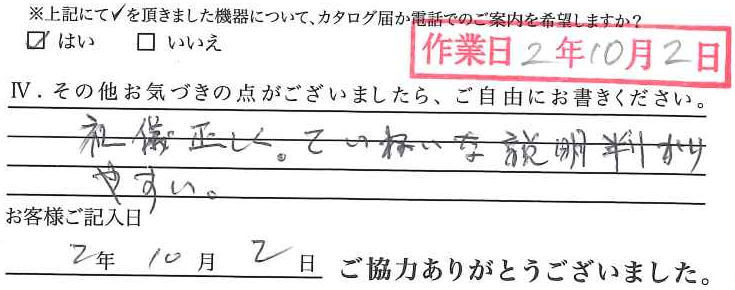 ※上記にて✓を頂きました機器について、カタログ届か電話でのご案内を希望しますか?
☑ はい □ いいえ
作業日 2年10月2日
Ⅳ．その他お気づきの点がございましたら、ご自由にお書きください。
礼儀正しく。ていねいな説明判かり
やすい。
お客様ご記入日
2年 10月 2日 ご協力ありがとうございました。